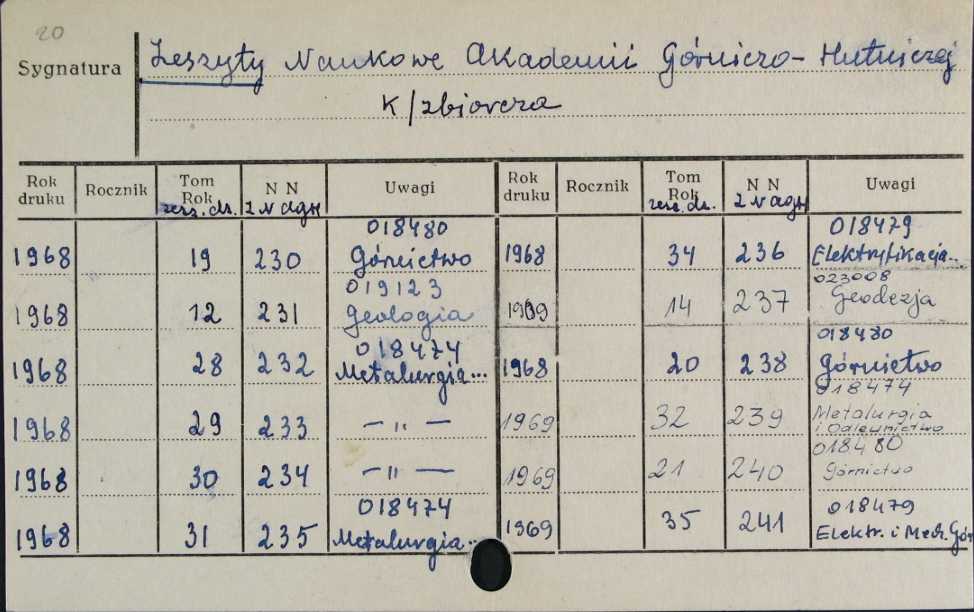 20
Sygnatura Zeszyty Naukowe Akademii Górniczo-Hutniczej
K/zbiorcza
Rok druku Rocznik Tom Rok zesz. ds. N N z N AGH Uwagi Rok druku Rocznik Tom Rok zesz. ds. N N z N AGH Uwagi
018480 018479
1968 19 230 Górnictwo 1968 34 236 Elektryfikacja..
019123 023008
1968 12 231 Geologia 1969 14 237 Geodezja
018474 018480
1968 28 232 Metalurgia... 1968 20 238 Górnictwo
018474
1968 29 233 — " — 1969 32 239 Metalurgia i Odlewnictwo
018480
1968 30 234 — " — 1969 21 240 Górnictwo
018474 018479
1968 31 235 Metalurgia... 1969 35 241 Elektr. i Mech. Gór